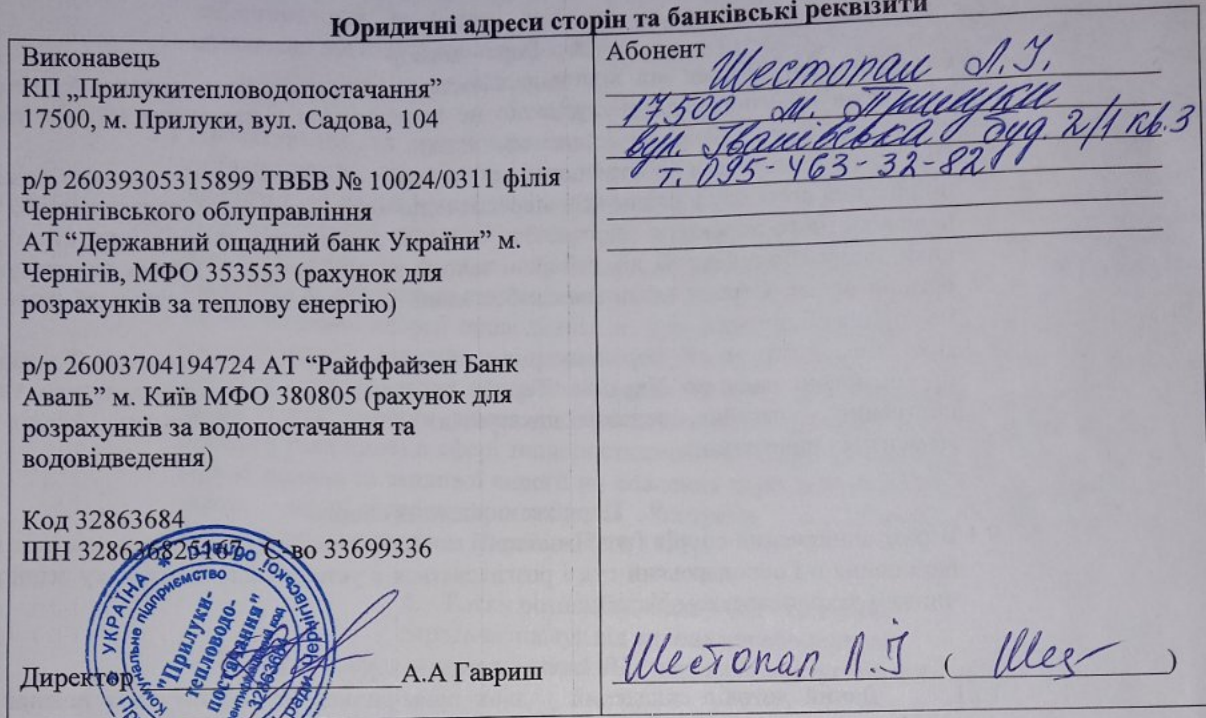 Юридичні адреси сторін та банківські реквізити
Виконавець
КП „Прилукитепловодопостачання”
17500, м. Прилуки, вул. Садова, 104
р/р 26039305315899 ТВБВ № 10024/0311 філія
Чернігівського облуправління
АТ “Державний ощадний банк України” м.
Чернігів, МФО 353553 (рахунок для
розрахунків за теплову енергію)
р/р 26003704194724 АТ “Райффайзен Банк
Аваль” м. Київ МФО 380805 (рахунок для
розрахунків за водопостачання та
водовідведення)
Код 32863684
ІПН 328636825167 С-во 33699336
Директор А.А Гавриш
УКРАЇНА
Комунальне підприємство
"Прилуки-
тепловодо-
постачання"
32863684
Абонент Шестопал Л.І.
17500 м. Прилуки
вул. Іванівська буд 2/1 кв.3
т. 095-463-32-82
Шестопал Л.І (Шес)